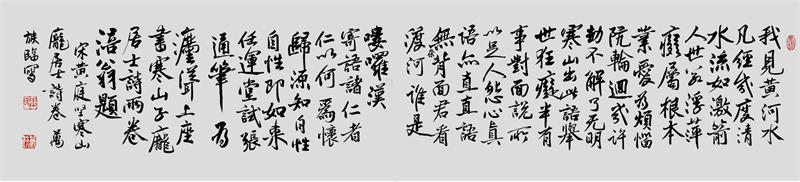 我見黃河水
凡經幾度清
水流如激箭
人世若浮萍
癡屬根本
業愛為煩惱
阬輪迴幾許
劫不解了无明
寒山出此語舉
世狂癡半有
事對面說所
以足人怨心真
語亦直直語
無背面君看
渡河誰是
嘍囉漢
寄語諸仁者
仁以何為懷
歸源知自性
自性即如來
任運堂試張
通筆為
灋聳上座
書寒山子龐
居士詩兩卷
涪翁題
宋黃庭堅寒山
龐居士詩卷萬
族臨寫